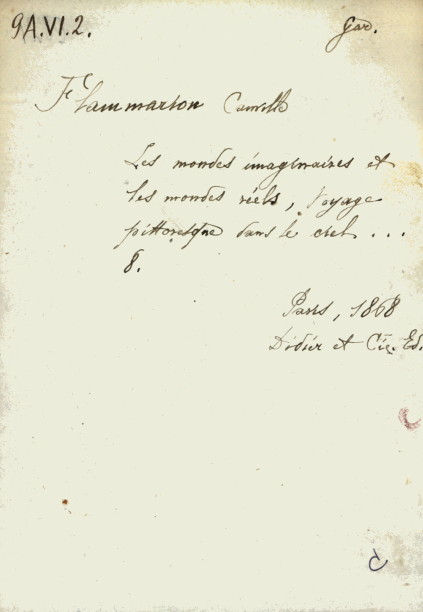 9A.VI.2.
Gad.
Flammarion Camille
Les mondes imaginaires et
les mondes réels, Voyage
pittoresque dans le ciel ...
8.
Paris, 1868
Didier et Cie. Ed.
C